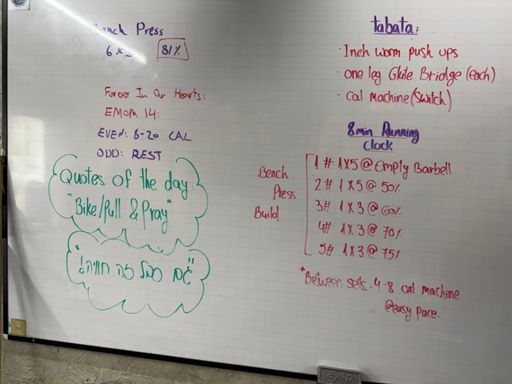 Bench Press
6 x
81%
Forever In Our Hearts:
EMOM 14:
EVEN: 6-20 CAL
ODD: REST
Quotes of the day:
"Bike/Pull & Pray"
tabata:
· Inch worm push ups
· one leg Glute Bridge (each)
· cal machine (switch)
8 min Running
Clock
Bench
Press
Build!
1# 1x5 @ Empty Barbell
2# 1x5 @ 50%
3# 1x3 @ 60%
4# 1x3 @ 70%
5# 1x3 @ 75%
*Between sets: 4-8 cal machine
@easy pace.